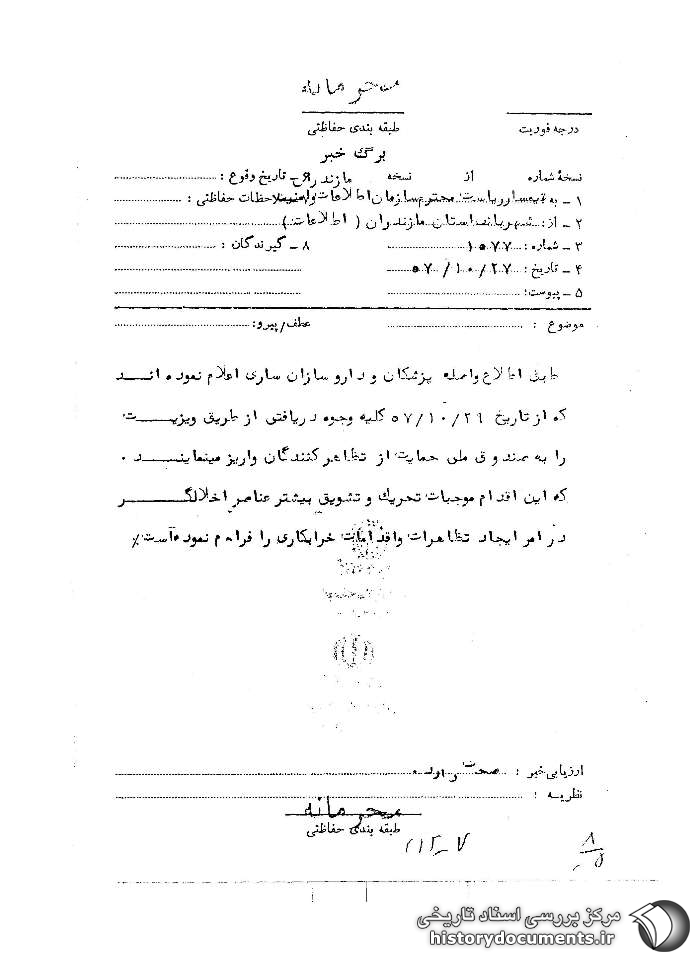 محرمانه
درجه فوریت
طبقه بندی حفاظتی
برگ خبر
نسخهٔ شماره از نسخه مازندران تاریخ وقوع :
۱ – به تیمسار ریاست محترم سازمان اطلاعات و امنیت ملاحظات حفاظتی :
۲ – از : شهربانی استان مازندران ( اطلاعات )
۳ – شماره : ۱۰۵۷۷ ۸ – گیرندگان :
۴ – تاریخ : ۵۷/۱۰/۲۷
۵ – پیوست :
موضوع : عطف/پیرو :
طبق اطلاع واصله پزشکان و داروسازان ساری اعلام نموده اند
که از تاریخ ۵۷/۱۰/۲۶ کلیه وجوه دریافتی از طریق ویزیت
را به صندوق ملی حمایت از تظاهرکنندگان واریز مینمایند .
که این اقدام موجبات تحریک و تشویق بیشتر عناصر اخلالگر
در امر ایجاد تظاهرات و اقدامات خرابکاری را فراهم نموده است٪
ارزیابی خبر : صحت دارد
نظریه :
محرمانه
طبقه بندی حفاظتی
مرکز بررسی اسناد تاریخی
historydocuments.ir